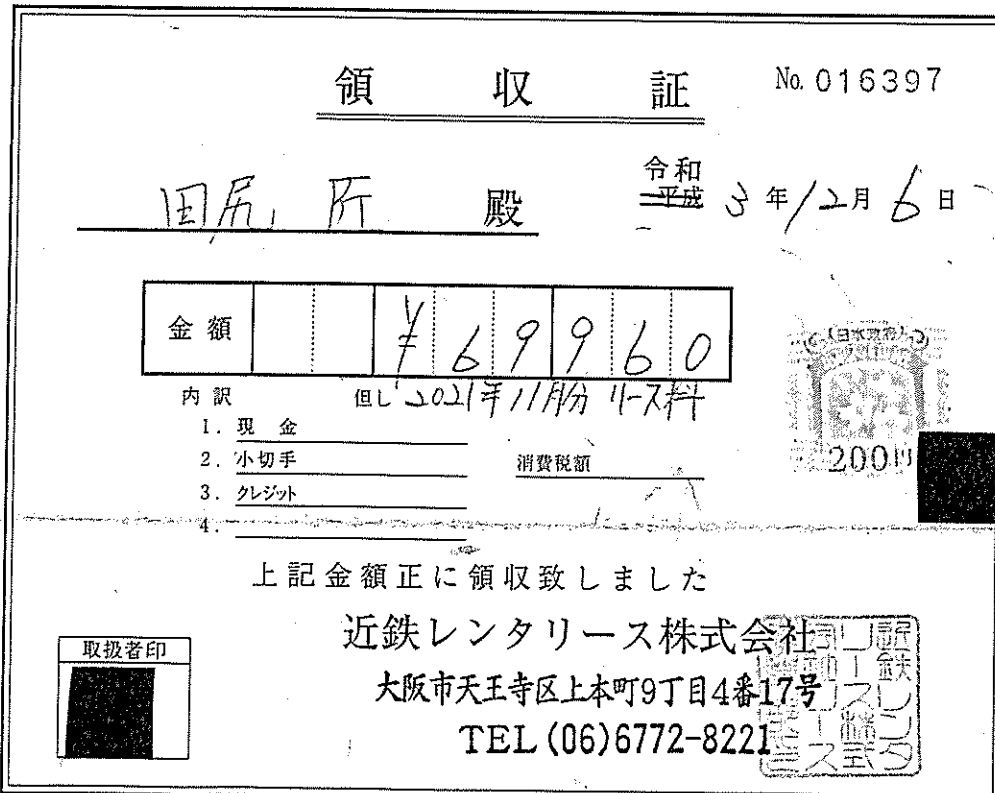 領収証
No. 016397
田尻 斤 殿
令和
平成 3年12月6日
金額 ¥69960
内訳 但し 2021年11月分 リース料
1. 現金
2. 小切手 消費税額
3. クレジット
4.
日本政府
200円
上記金額正に領収致しました
近鉄レンタリース株式会社
取扱者印
大阪市天王寺区上本町9丁目4番17号
TEL(06)6772-8221